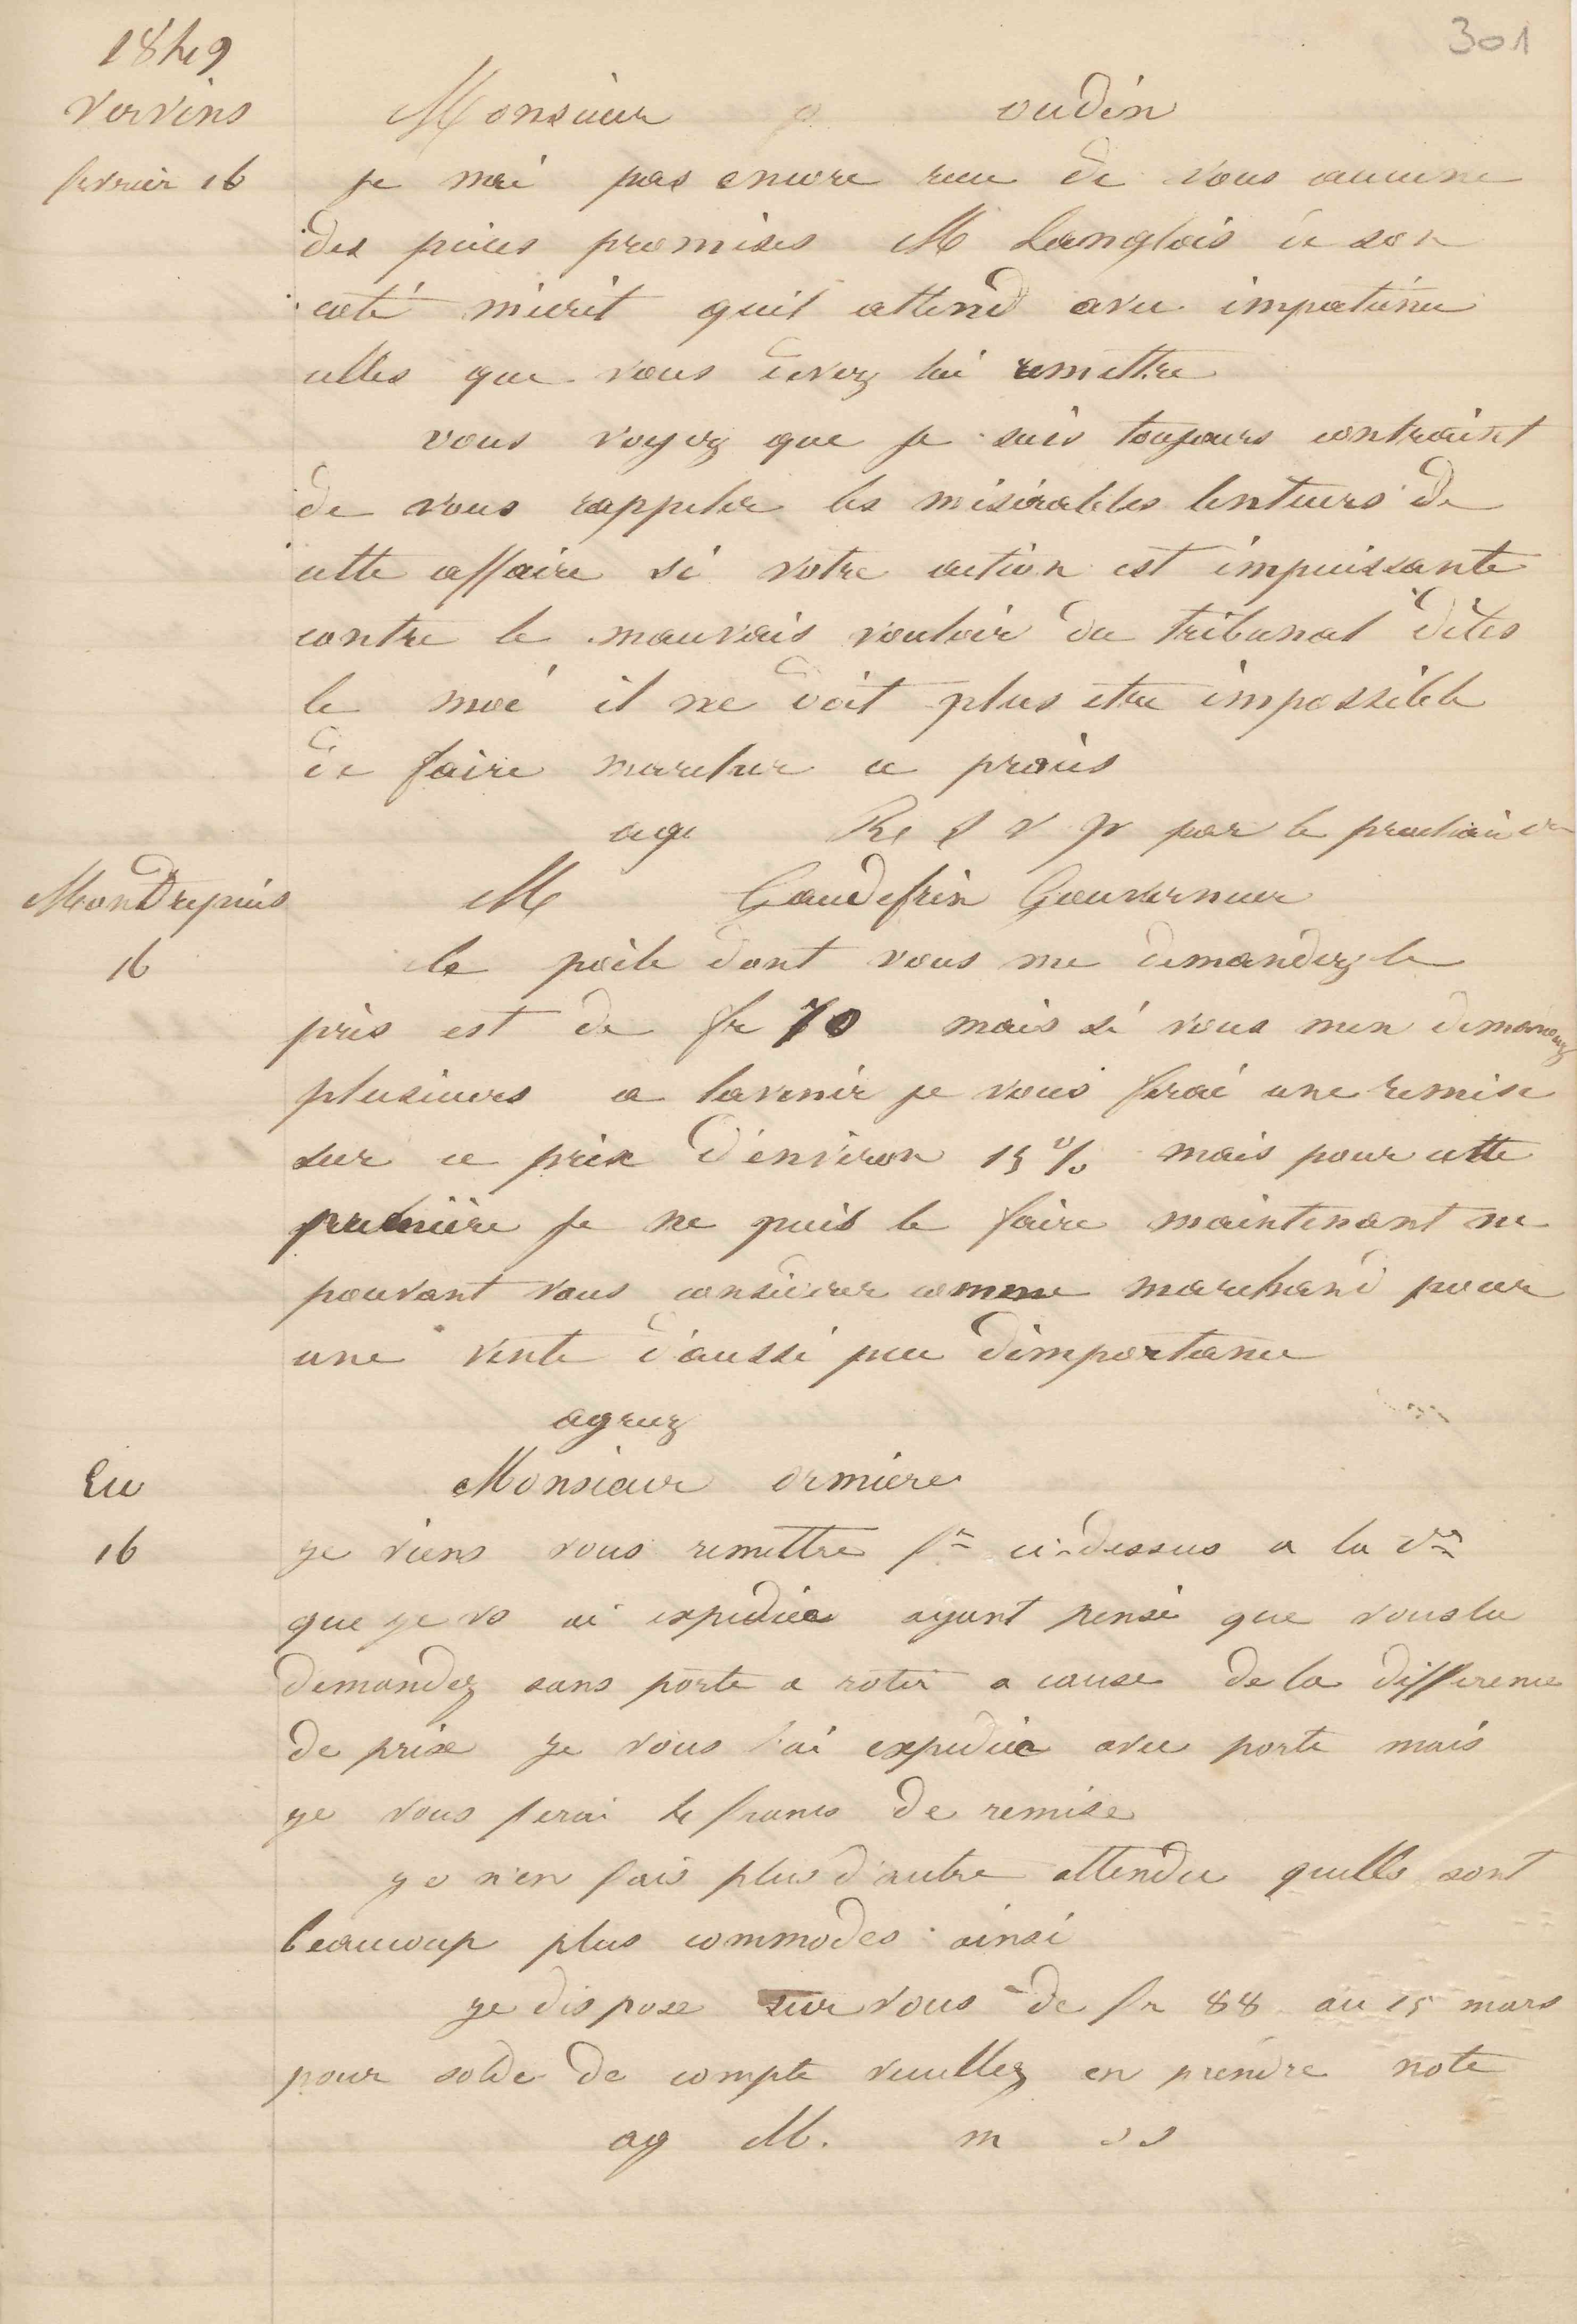 301
1849
Vervins
fevrier 16
Monsieur oudin
je nai pas encore recu de vous aucune
des pieces promises M Langlois de son
coté mecrit quil attend avec impatience
celles que vous devez lui remettre
vous voyez que je suis toujours contraint
de vous rappeler les misérables lenteurs de
cette affaire si votre action est impuissante
contre le mauvais vouloir du tribunal dites
le moi il ne doit plus etre impossible
de faire marcher ce procès
agr R S V P par le prochain
Mondrepuis
16
M Gaudefrin Gouverneur
le poële dont vous me demandez le
pris est de fr 70 mais si vous men demandez
plusieurs a lavenir je vous ferai une remise
sur ce prix d'environ 15 % mais pour cette
première je ne puis le faire maintenant ne
pouvant vous considerer comme marchand pour
une vente d'aussi peu dimportance
agreez
Eu
16
Monsieur ormiere
je viens vous remettre fre ci-dessus a la
que je vs ai expediee ayant pensé que vous la
demandez sans porte a rotir a cause de la difference
de prix je vous l'ai expediee avec porte mais
je vous ferai 4 francs de remise
je n'en fais plus d'autre attendu quelles sont
beaucoup plus commodes ainsi
je dispose sur vous de fr 88 au 15 mars
pour solde de compte veuillez en prendre note
ag M. m